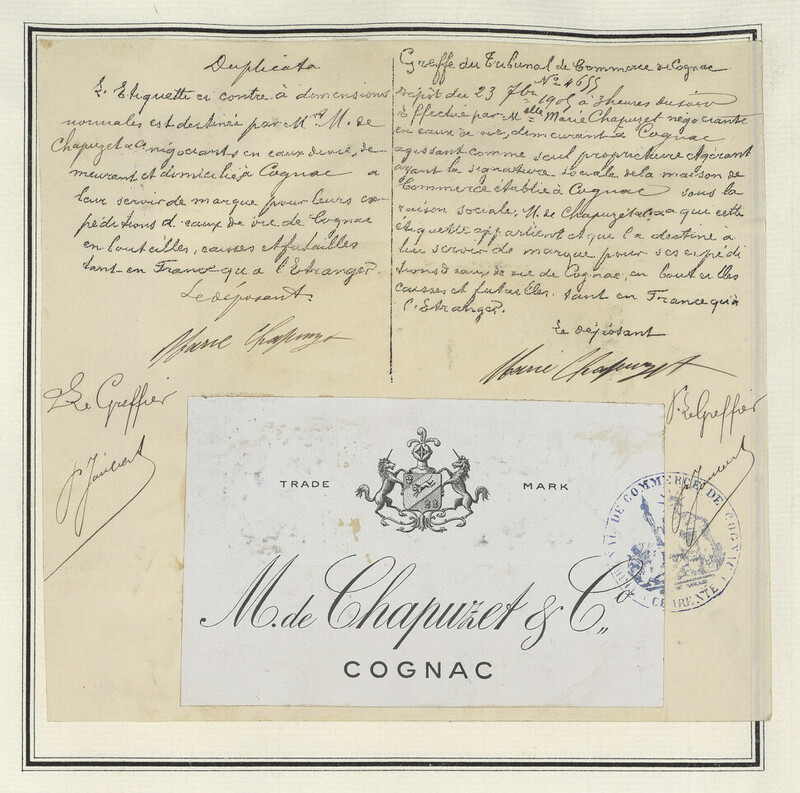 Duplicata
L'Etiquette ci contre à dimensions
normales est destinée par Mrs M. de
Chapuzet & Cie négociants en eaux de vie, de-
meurant et domiciliés à Cognac a
leur servir de marque pour leurs ex-
péditions d'eaux de vie de Cognac
en bouteilles, caisses et futailles
tant en France qu'à l'Etranger.
Le déposant
Marie Chapuzet
Le Greffier
Greffe du Tribunal de Commerce de Cognac
No 4655
Dépôt du 23 7bre 1905 à 3 heures du soir
Effectué par Melle Marie Chapuzet négociante
en eaux de vie, demeurant à Cognac
agissant comme seul propriétaire & gérant
ayant la signature sociale de la maison de
Commerce établie à Cognac sous la
raison sociale: M. de Chapuzet & Cie a que cette
étiquette appartient et qui l'a destiné à
lui servir de marque pour ses expédi
tions d'eaux de vie de Cognac, en bouteilles
caisses et futailles tant en France qu'à
l'Etranger.
Le déposant
Marie Chapuzet
Le Greffier
TRADE MARK
M. de Chapuzet & Co
COGNAC
DE COMMERCE DE COGNAC
CHARENTE